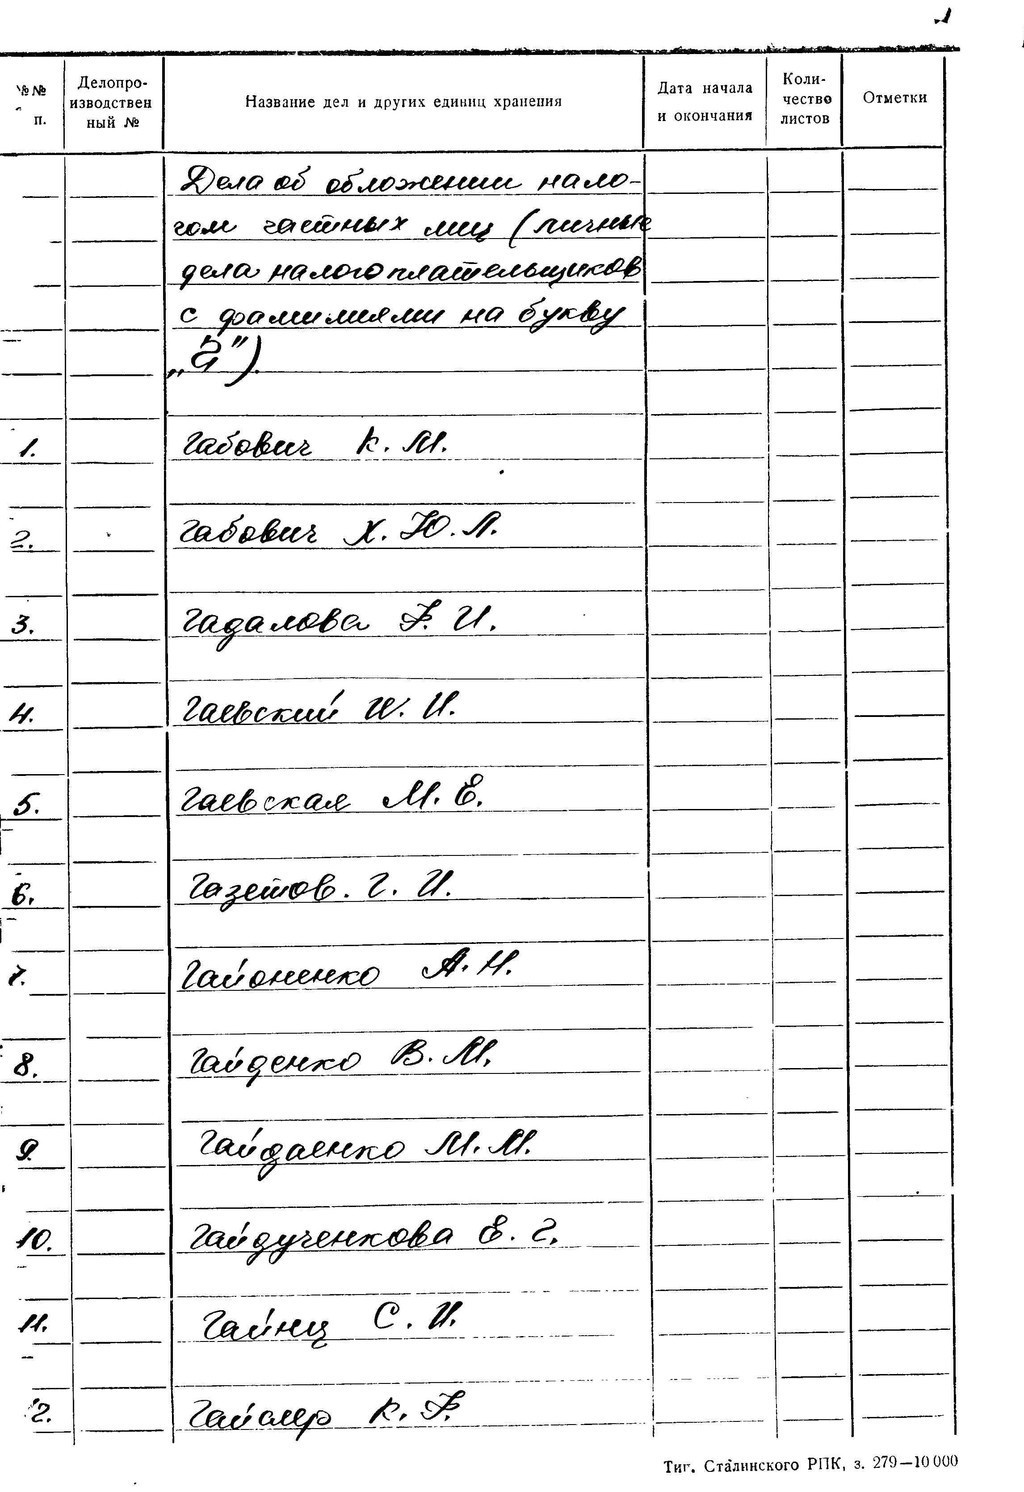 №№
п.
Делопро-
изводствен
ный №
Название дел и других единиц хранения
Дата начала
и окончания
Коли-
чество
листов
Отметки
Дела об обложении нало-
гом частных лиц (личные
дела налогоплательщиков
с фамилиями на букву
„Г").
1. Габович К. М.
2. Габович Х. Ю. Л.
3. Гадалова F. И.
4. Гаевский И. И.
5. Гаевская М. Е.
6. Газетов. Г. И.
7. Гайоненко А. Н.
8. Гайденко В. М.
9. Гайдаенко М. М.
10. Гайдученкова Е. Г.
11. Гайнц С. И.
12. Гайслер К. F.
Тип. Сталинского РПК, з. 279—10 000